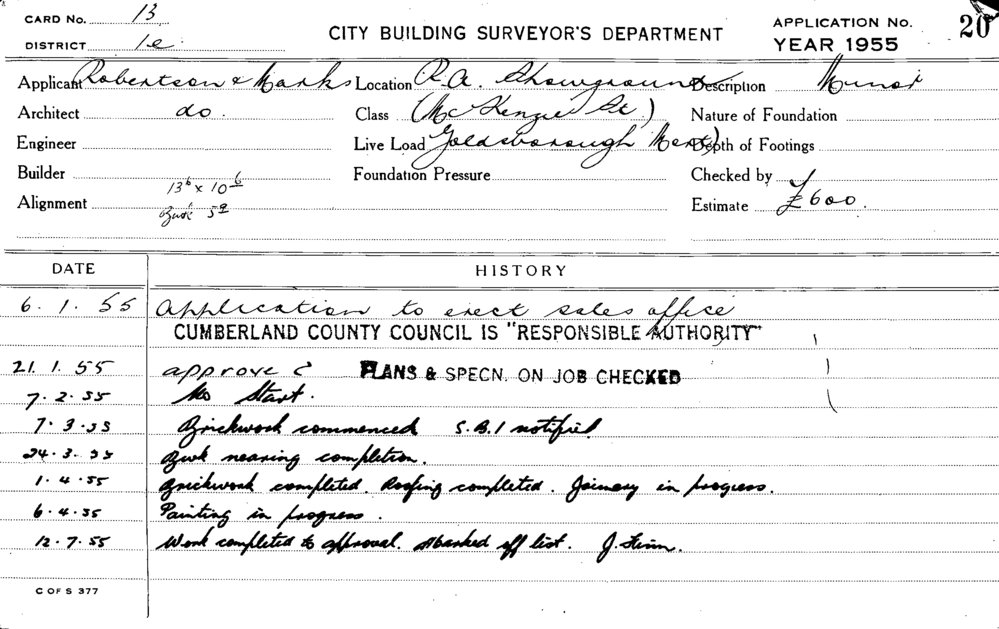 CARD No. 13
DISTRICT 1e
CITY BUILDING SURVEYOR'S DEPARTMENT
APPLICATION No. 20
YEAR 1955
Applicant Robertson & Marks Location R.A. Showground Description Minor
Architect do. Class (McKenzie St) Nature of Foundation
Engineer Live Load Goldsborough Mort) Depth of Footings
Builder Foundation Pressure Checked by
Alignment 13⁶ x 10⁶ Estimate £600.
DATE HISTORY
6.1.55 Application to erect sales office
CUMBERLAND COUNTY COUNCIL IS "RESPONSIBLE AUTHORITY"
21.1.55 approve PLANS & SPECN. ON JOB CHECKED
7.2.55 No Start.
7.3.55 Brickwork commenced S.B.I notified
24.3.55 Bwk nearing completion.
1.4.55 Brickwork completed. Roofing completed. Joinery in progress.
6.4.55 Painting in progress.
12.7.55 Work completed to approval. Marked off list. J.
C OF S 377